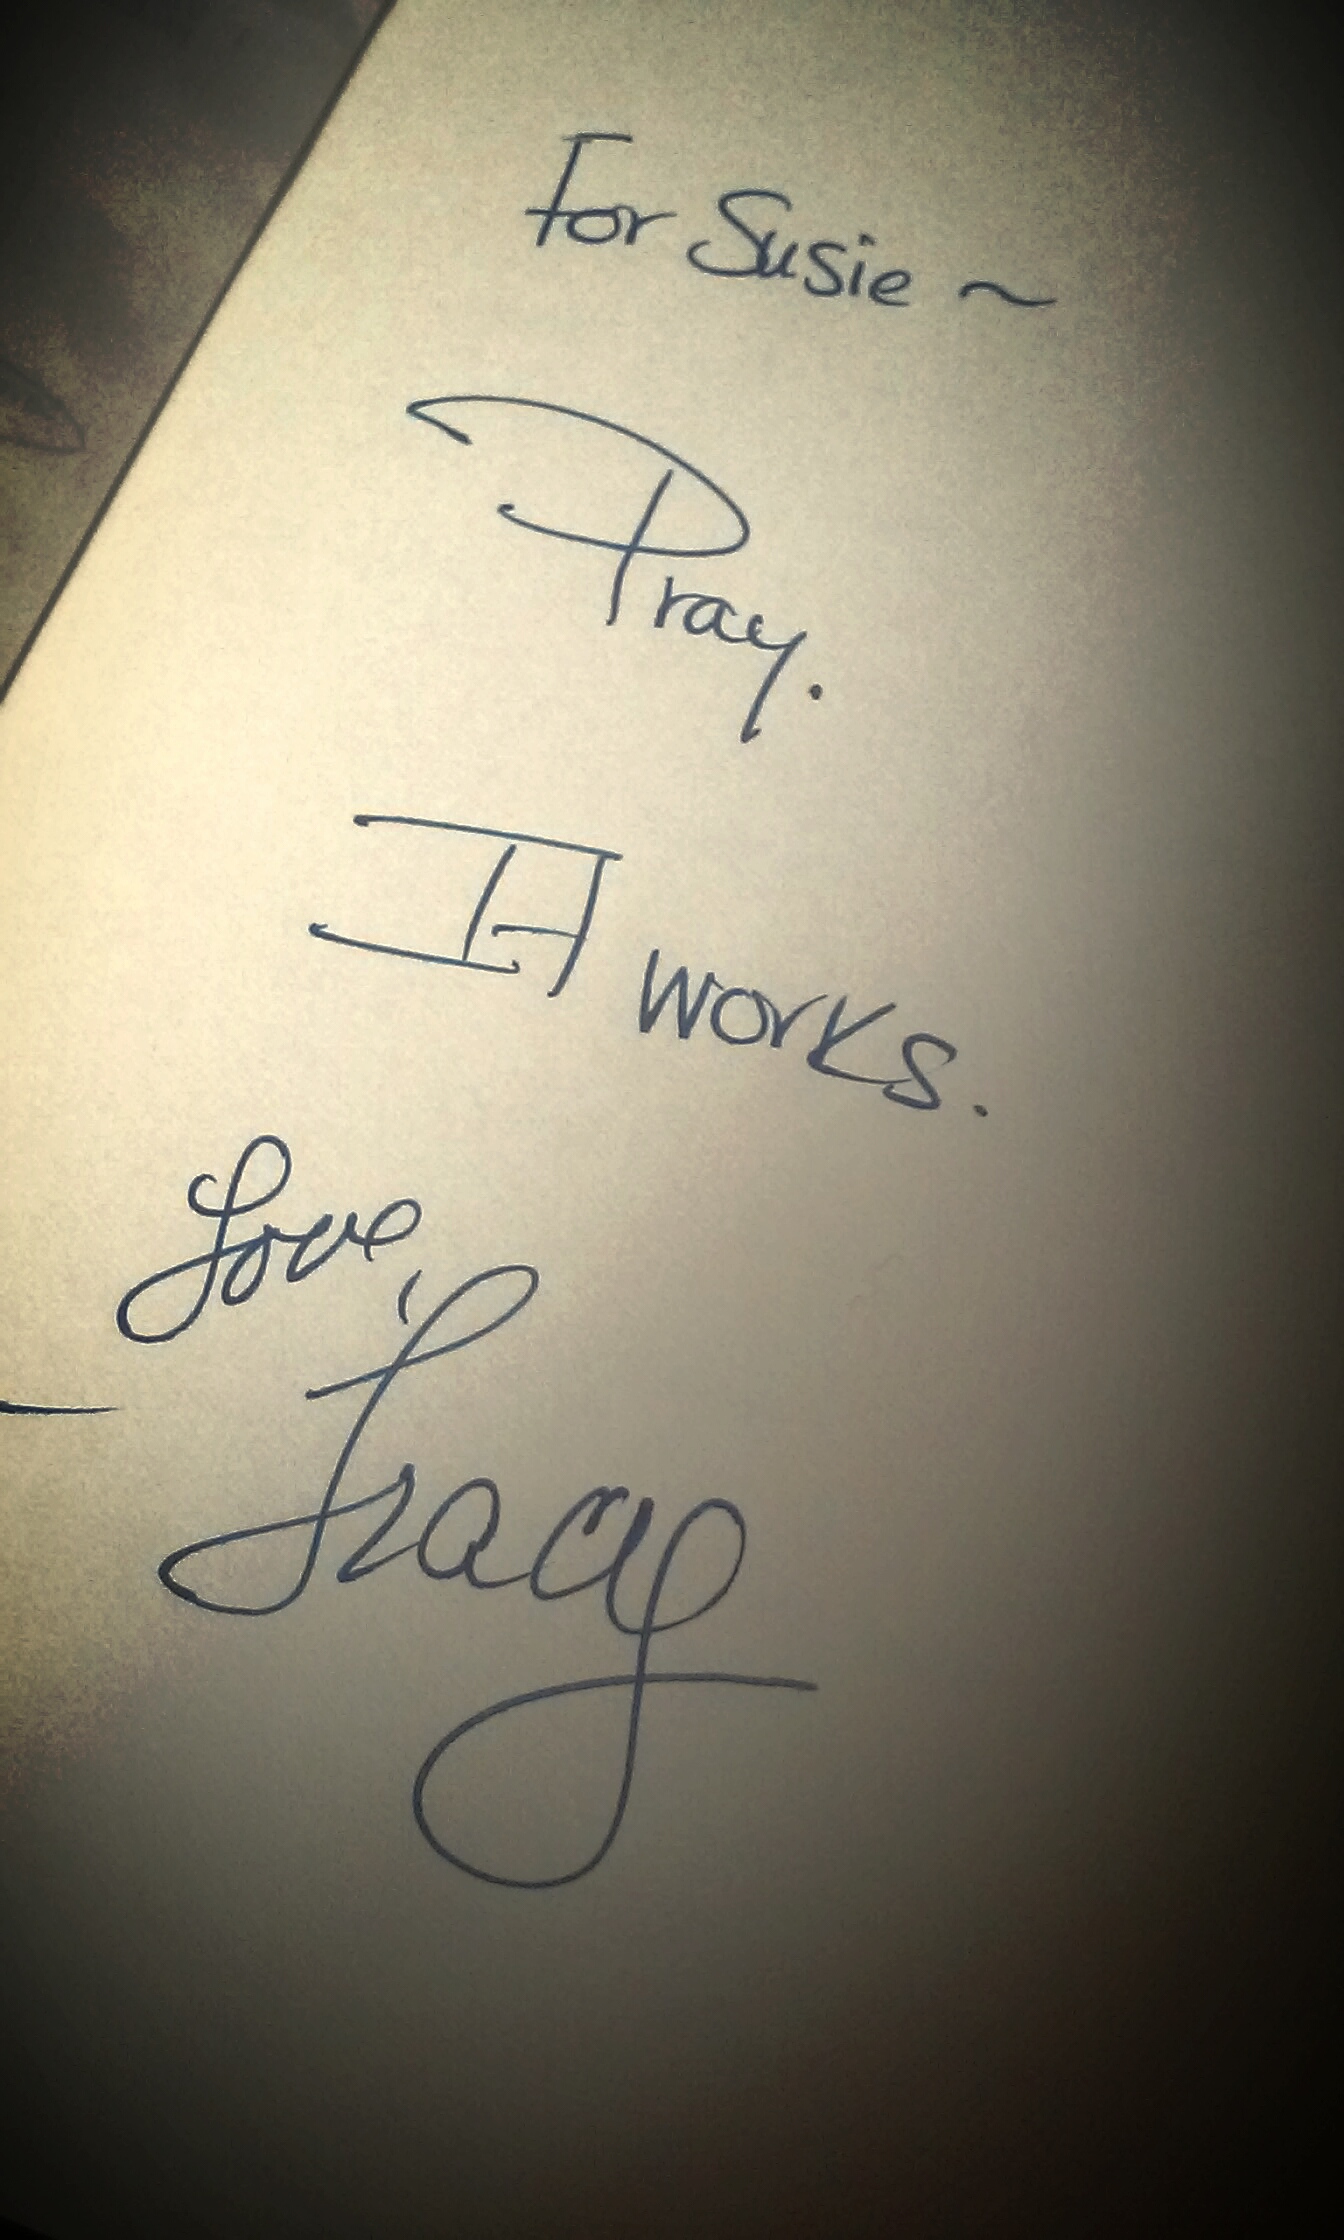 For Susie ~
Pray.
It works.
Love,
Tracy